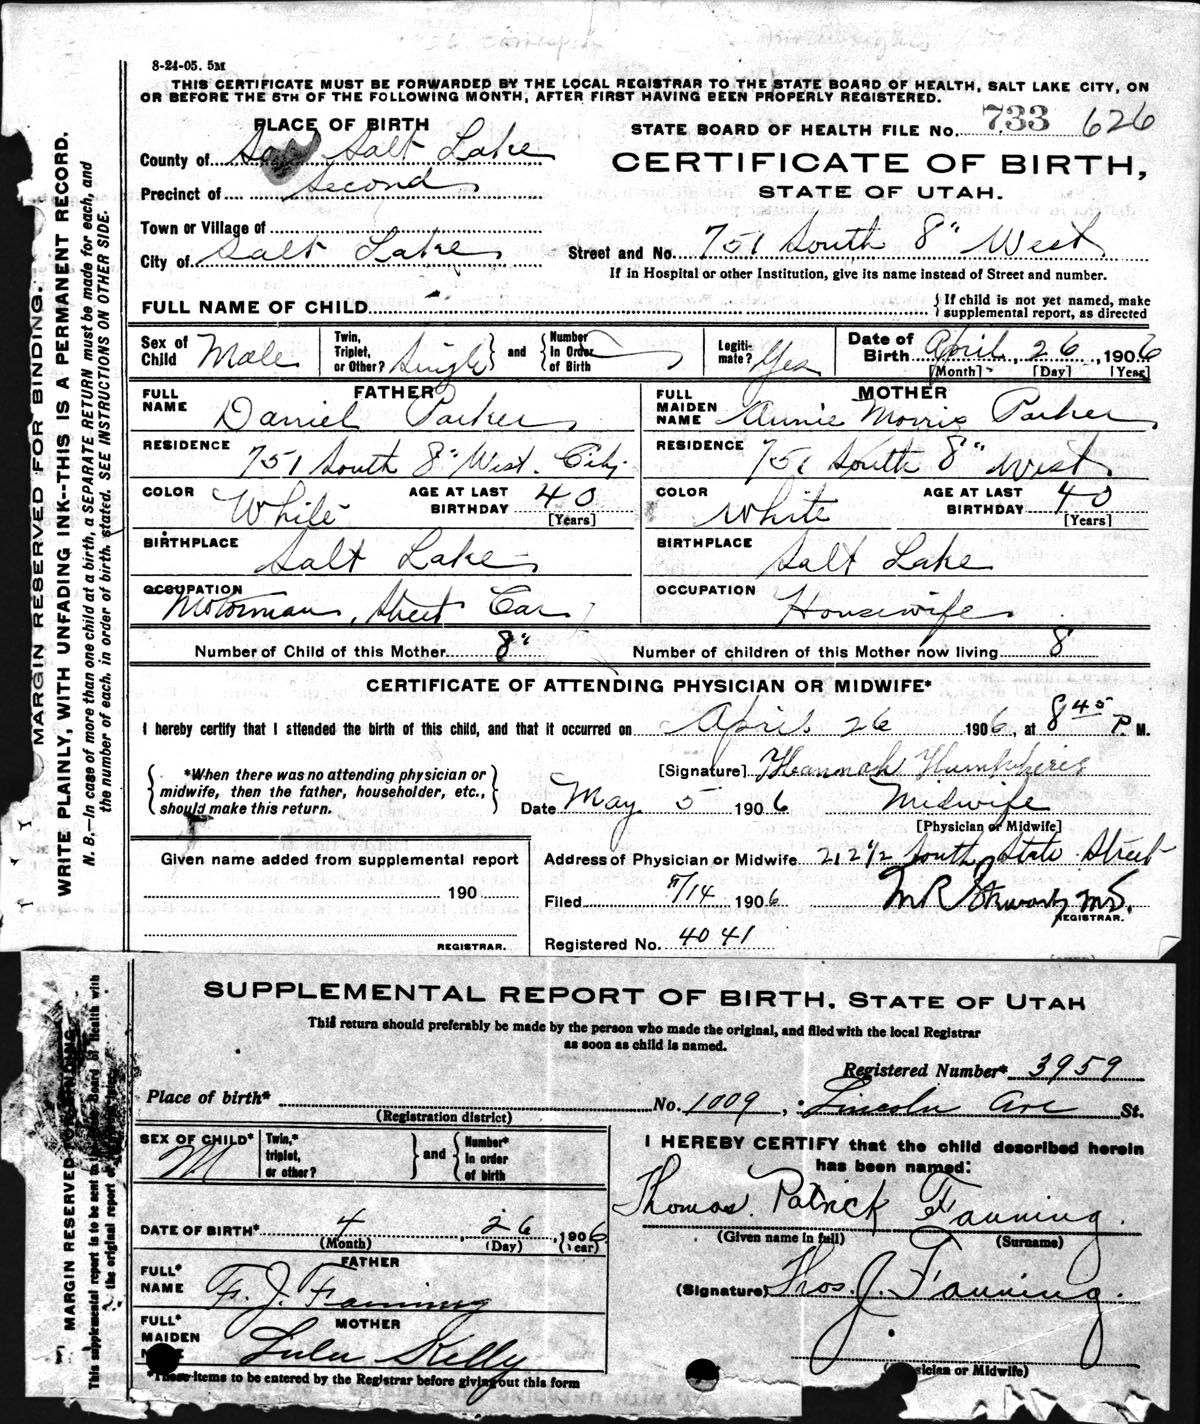 8-24-05. 5M
THIS CERTIFICATE MUST BE FORWARDED BY THE LOCAL REGISTRAR TO THE STATE BOARD OF HEALTH, SALT LAKE CITY, ON
OR BEFORE THE 5TH OF THE FOLLOWING MONTH, AFTER FIRST HAVING BEEN PROPERLY REGISTERED.
PLACE OF BIRTH
STATE BOARD OF HEALTH FILE No. 733 626
County of Salt Lake
CERTIFICATE OF BIRTH,
Precinct of Second
STATE OF UTAH.
Town or Village of
City of Salt Lake
Street and No. 751 South 8" West
If in Hospital or other Institution, give its name instead of Street and number.
FULL NAME OF CHILD
If child is not yet named, make supplemental report, as directed
Sex of Child Male
Twin, Triplet, or Other? Single and Number in Order of Birth
Legitimate? Yes
Date of Birth April 26, 1906
[Month] [Day] [Year]
FATHER
FULL NAME Daniel Parker
MOTHER
FULL MAIDEN NAME Annie Morris Parker
RESIDENCE 751 South 8" West. City
RESIDENCE 751 South 8" West
COLOR White AGE AT LAST BIRTHDAY 40 [Years]
COLOR White AGE AT LAST BIRTHDAY 40 [Years]
BIRTHPLACE Salt Lake
BIRTHPLACE Salt Lake
OCCUPATION Motorman, Street Car
OCCUPATION Housewife
Number of Child of this Mother 8" Number of children of this Mother now living 8
CERTIFICATE OF ATTENDING PHYSICIAN OR MIDWIFE*
I hereby certify that I attended the birth of this child, and that it occurred on April 26 1906, at 8 45 P. M.
*When there was no attending physician or midwife, then the father, householder, etc., should make this return.
[Signature] Hannah Humpheris
Date May 5 1906 Midwife
[Physician or Midwife]
Given name added from supplemental report
190
REGISTRAR.
Address of Physician or Midwife 212½ South State Street
Filed 5/14 1906
REGISTRAR.
Registered No. 4041
MARGIN RESERVED FOR BINDING.
WRITE PLAINLY, WITH UNFADING INK--THIS IS A PERMANENT RECORD.
N. B.—In case of more than one child at a birth, a SEPARATE RETURN must be made for each, and
the number of each, in order of birth, stated. SEE INSTRUCTIONS ON OTHER SIDE.
SUPPLEMENTAL REPORT OF BIRTH, STATE OF UTAH
This return should preferably be made by the person who made the original, and filed with the local Registrar
as soon as child is named.
Registered Number* 3959
Place of birth* No. 1009, Lincoln Ave St.
(Registration district)
SEX OF CHILD* M
Twin,* triplet, or other? and Number* in order of birth
I HEREBY CERTIFY that the child described herein
has been named:
Thomas Patrick Fanning.
(Given name in full) (Surname)
DATE OF BIRTH* 4 26, 1906
(Month) (Day) (Year)
FATHER
FULL* NAME F. J. Fanning
(Signature) Thos. J. Fanning.
MOTHER
FULL* MAIDEN Lulu Kelly
or Midwife)
*These items to be entered by the Registrar before giving out this form
MARGIN RESERVED BINDING
This supplemental report is to be sent to Board of Health with
the original report